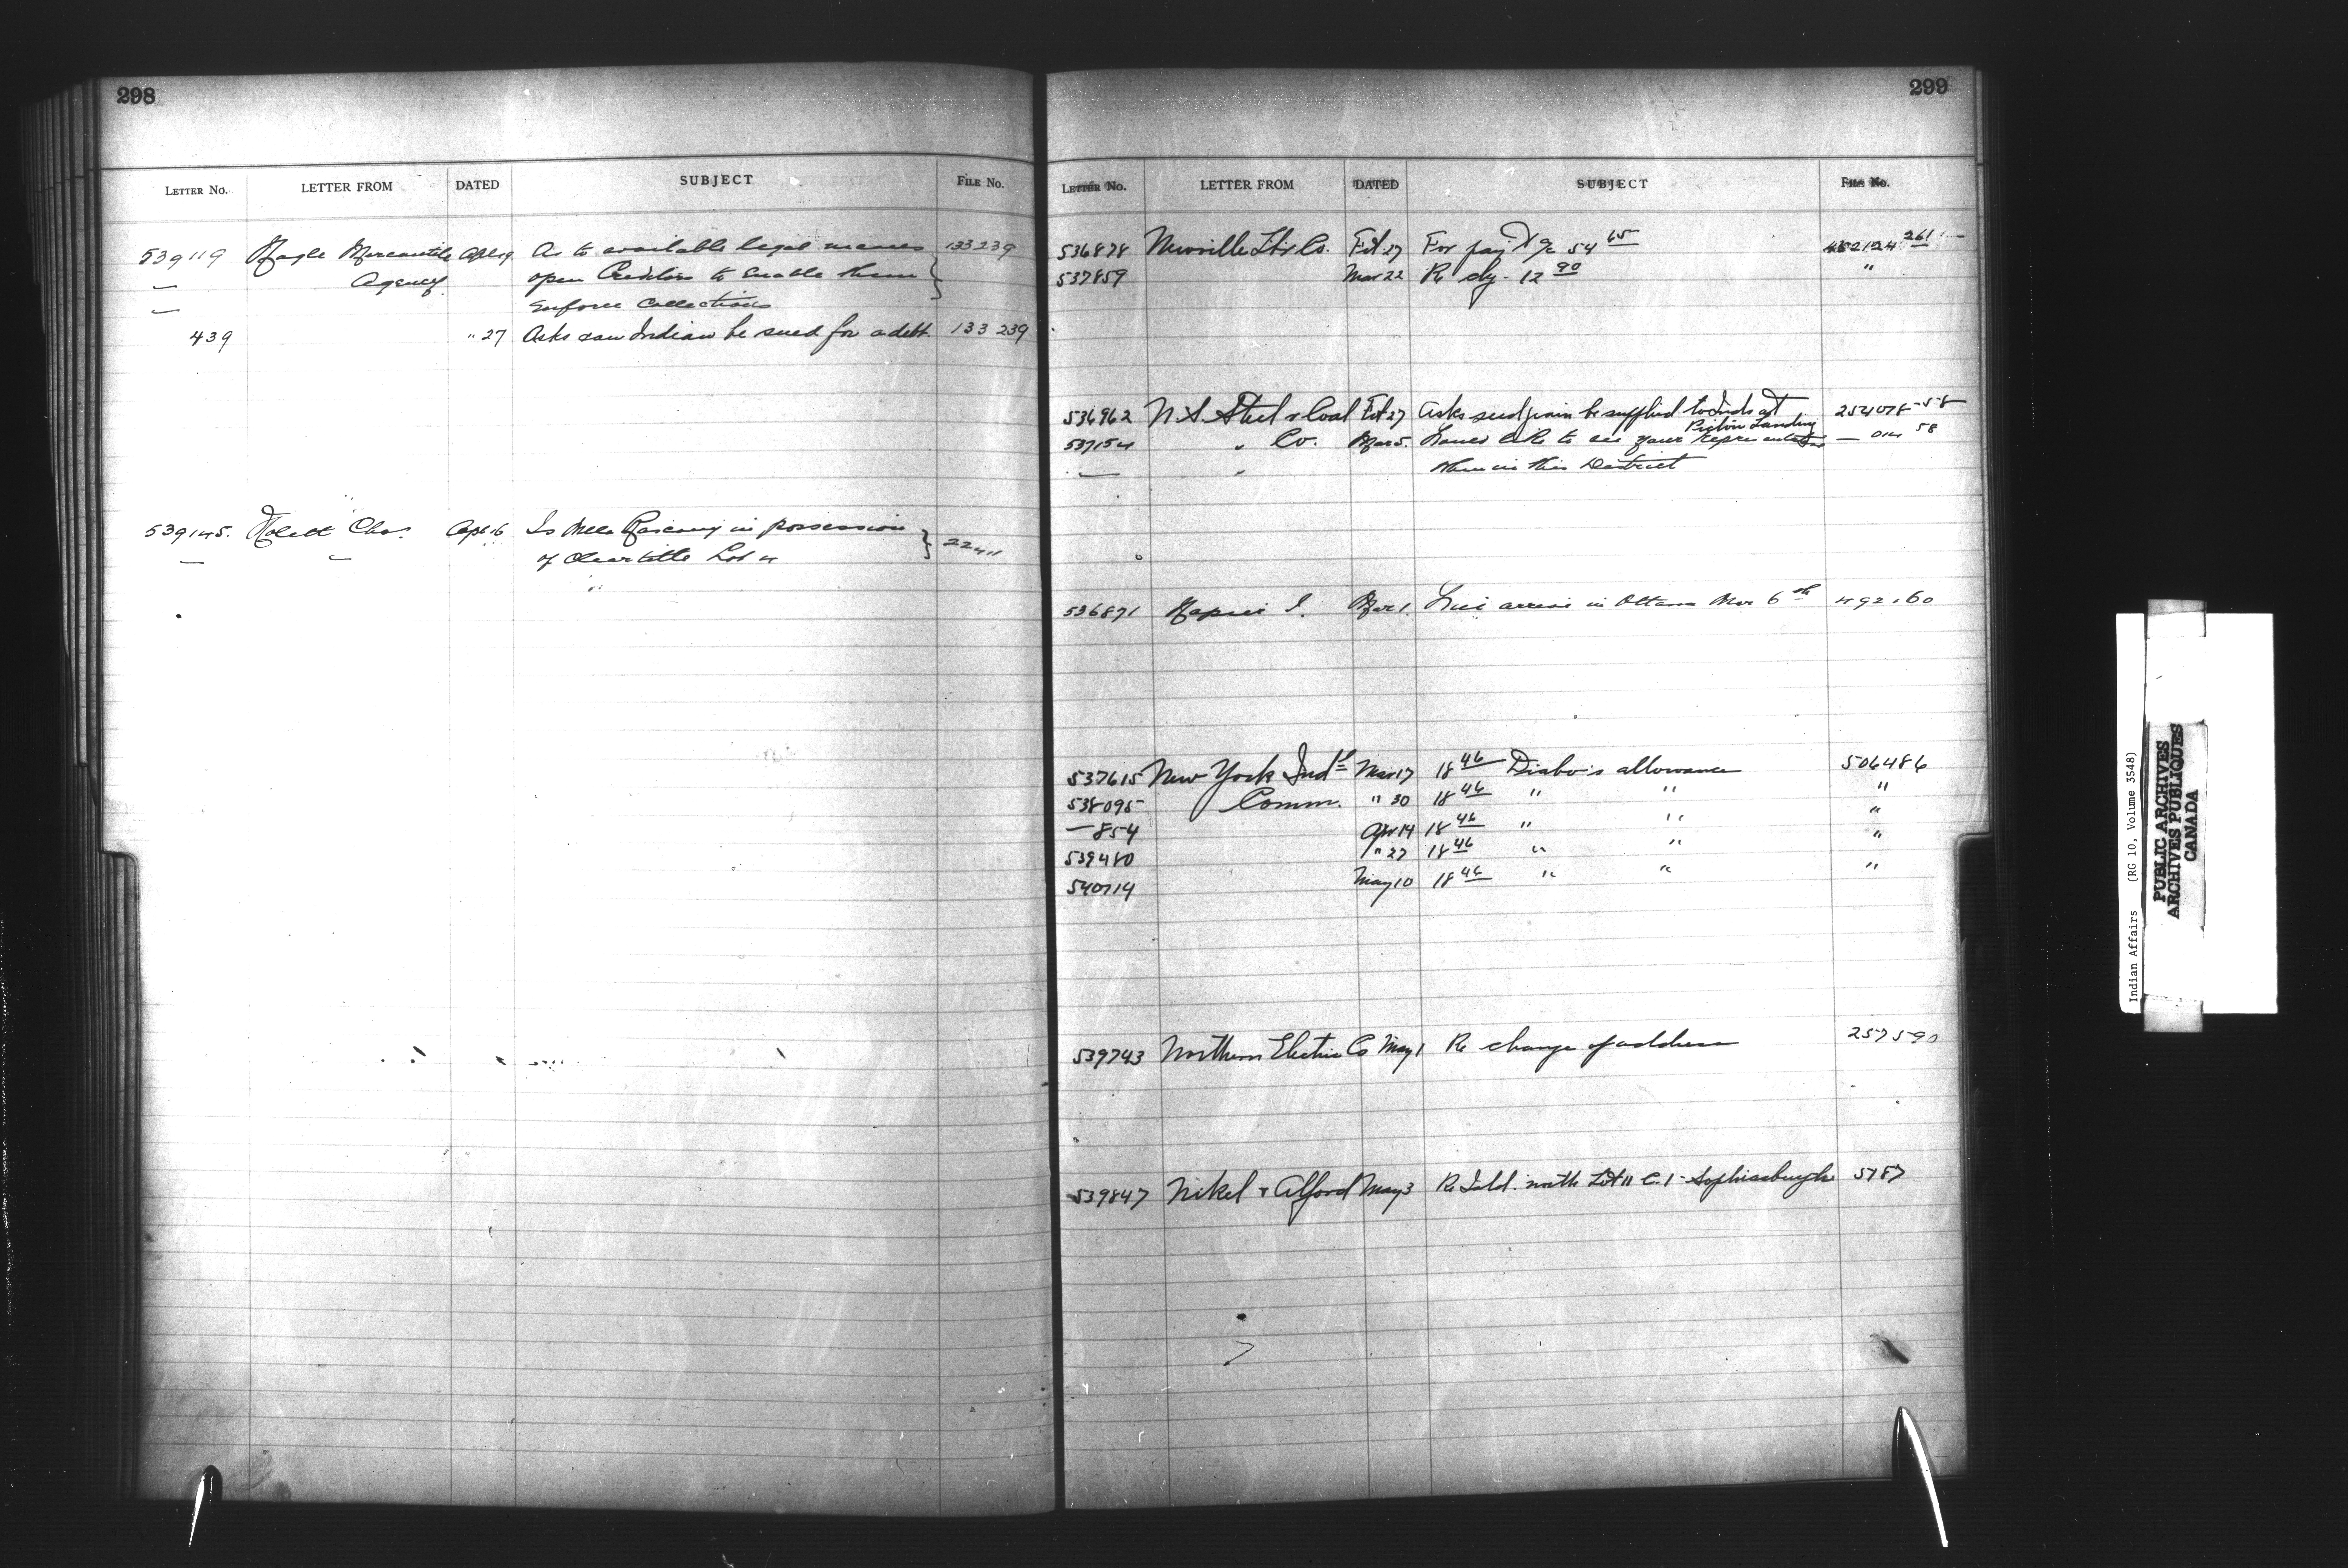 298
LETTER NO. LETTER FROM DATED SUBJECT FILE No.
539119 Nagle Mercantile Apl 19 As to available legal means 133239
— Agency open Creditors to enable them
— enforce Collections
439 " 27 Asks can Indian be sued for a debt. 133 239
539145. Chas. Apl 16 Is in possession
— of Clear title Lot 4
299
LETTER NO. LETTER FROM DATED SUBJECT FILE No.
536878 Co. Feb 27 For 54 65
537859 Mar 22 Re 12 90 "
536962 N.S. Steel & Coal Feb 27 Asks seed grain be supplied to Inds at 254078-58
Pictou Landing
537154 " Co. Mar 5. Would like to see your representative — 58
— " when in this District
536871 Mar 1. arrive in Ottawa Mar 6th 492,60
537615 New York Ind'l Mar 17 18 46 Diabo's allowance 506486
538095 Comm. " 30 18 46 " " "
— 854 Apr 14 18 46 " " "
539480 " 27 18 46 " " "
540714 May 10 18 46 " " "
539743 Northern Electric Co May 1 Re change of address 257590
539847 Nikel & Alford May 3 Re Isld. north Lot 11 C. 1 - Sophiasburgh 5787
Indian Affairs (RG 10, Volume 3548)
PUBLIC ARCHIVES
ARCHIVES PUBLIQUES
CANADA